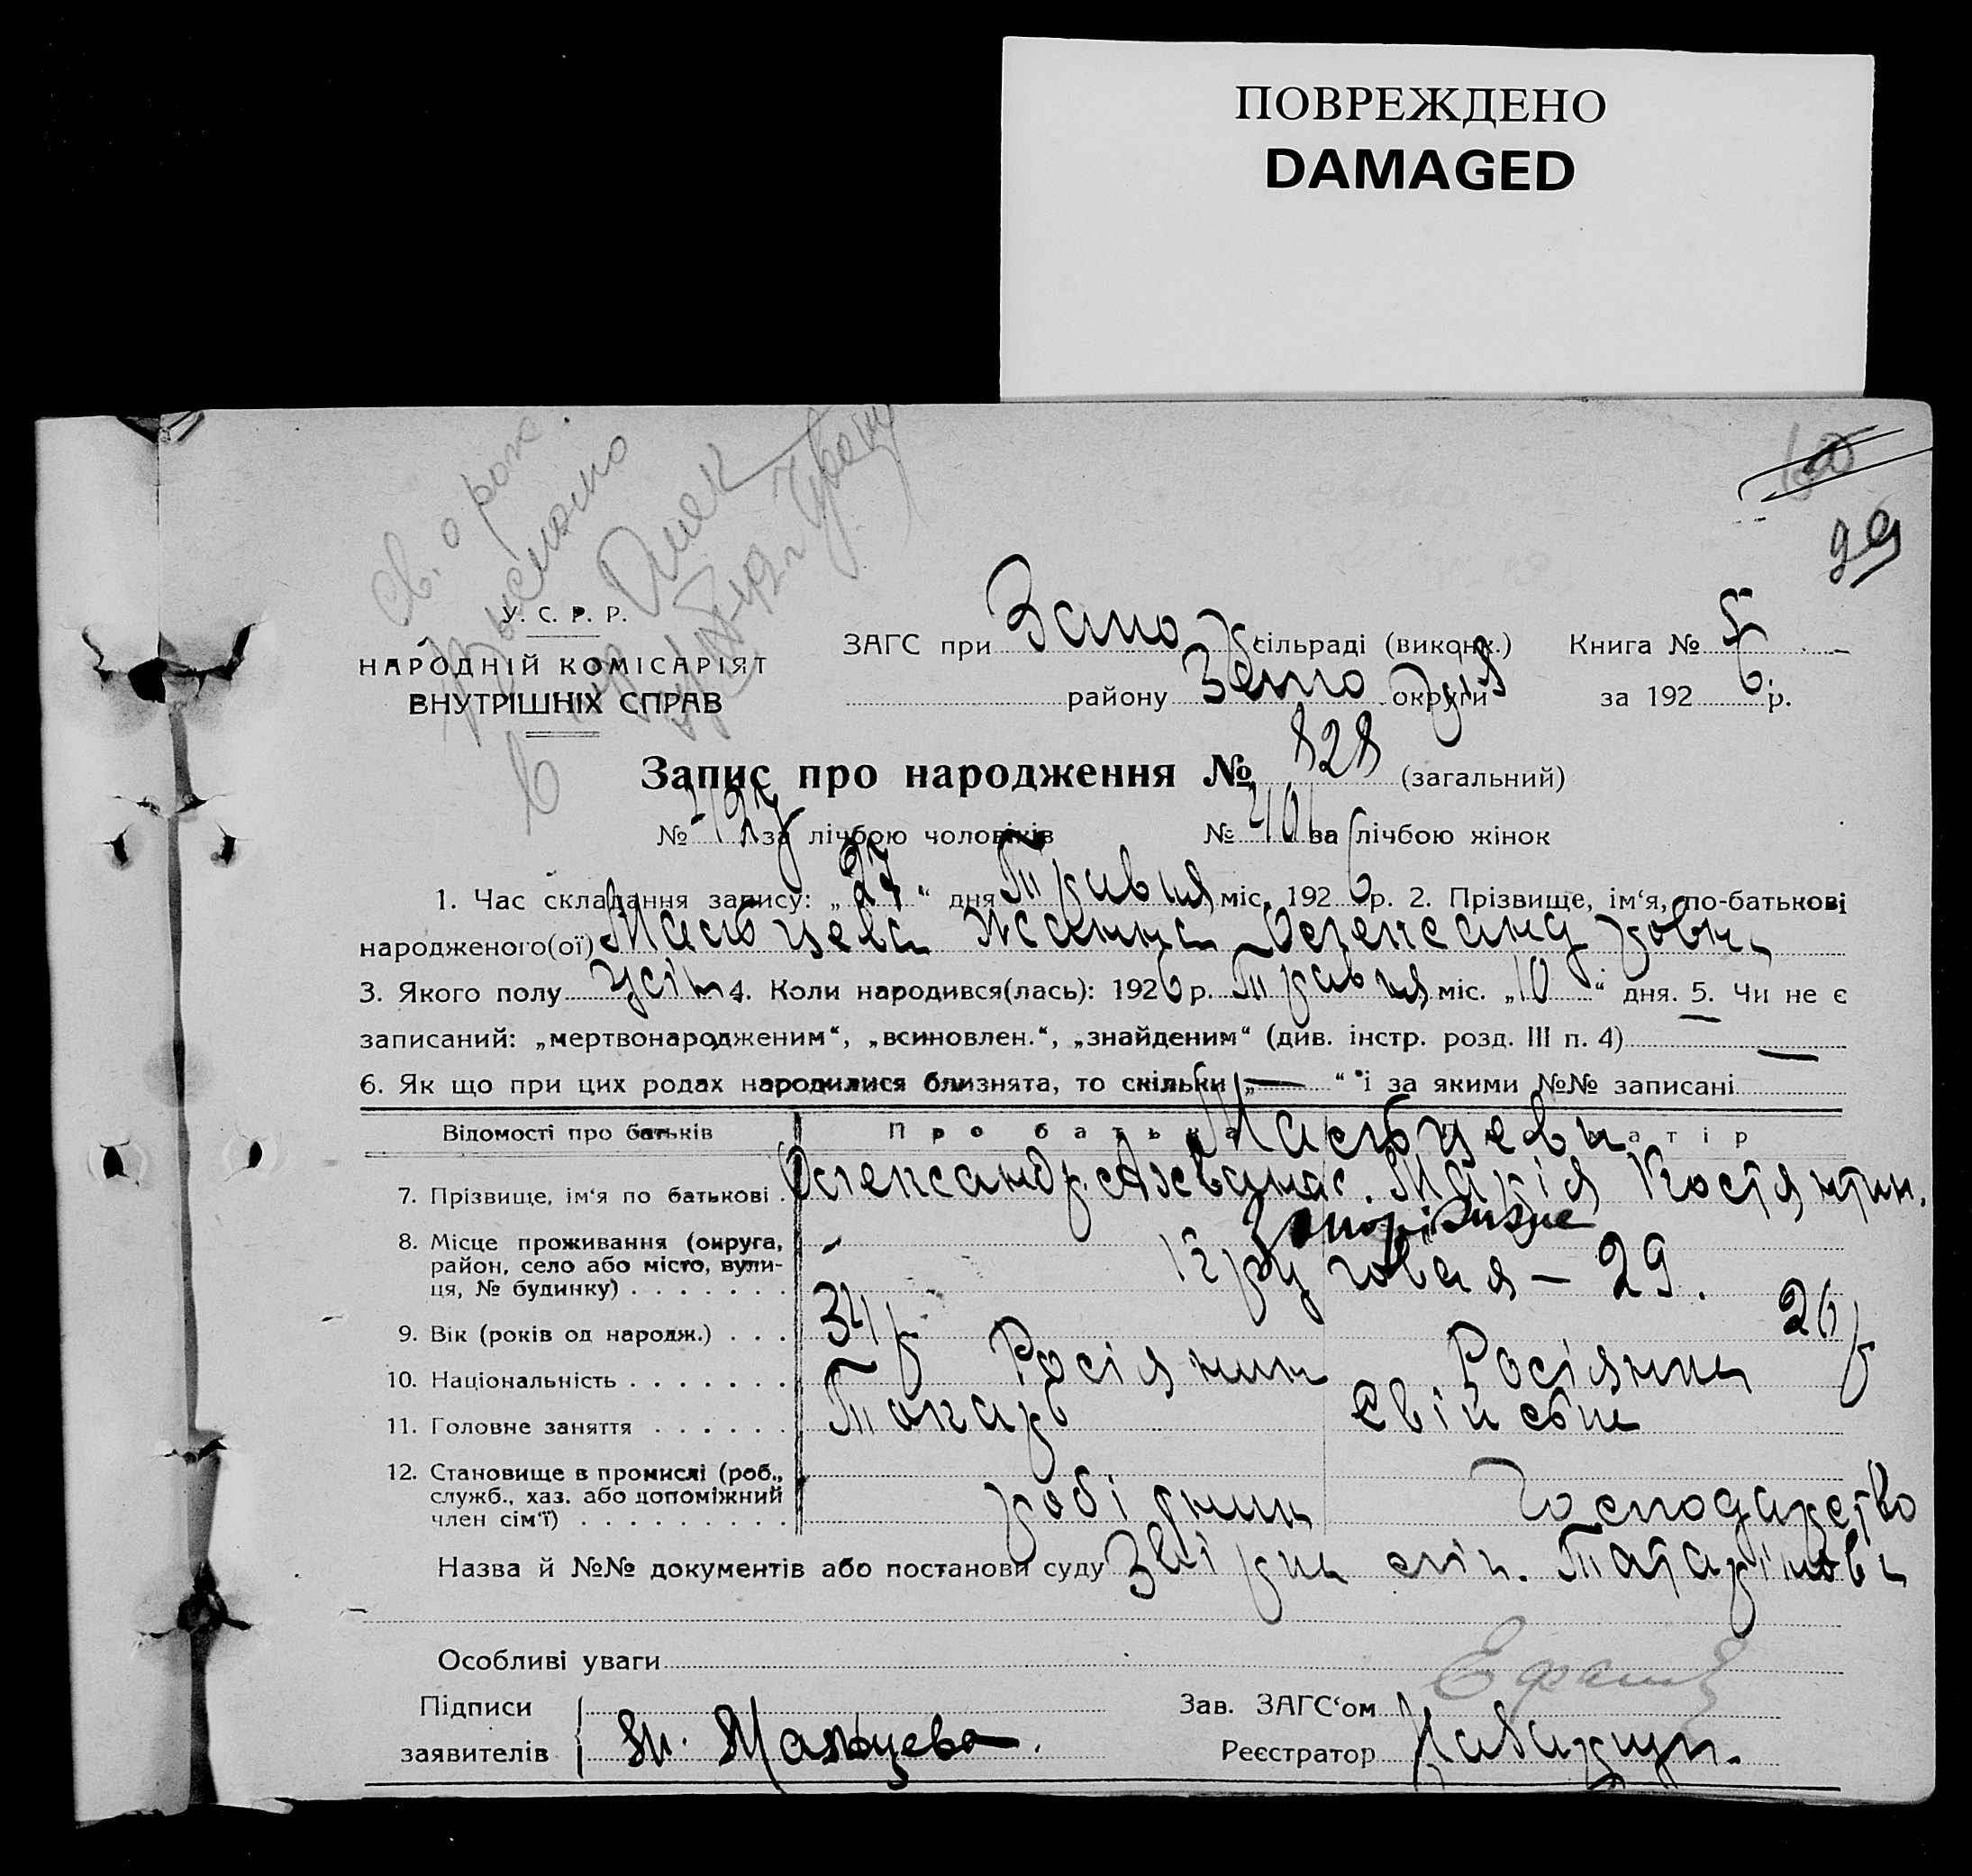 ПОВРЕЖДЕНО
DAMAGED
99
У. С. Р. Р.
НАРОДНІЙ КОМІСАРІЯТ
ВНУТРІШНІХ СПРАВ
ЗАГС при Запо сільраді (виконк.) Книга № 5
району Запо округи за 1926 р.
Запис про народження № 828 (загальний)
№ 427 за лічбою чоловіків № 401 за лічбою жінок
1. Час складання запису: „27“ дня Травня міс. 1926 р. 2. Прізвище, ім‘я, по-батькові
народженого(ої) Мальцева Жанна Олександровна
3. Якого полу жін 4. Коли народився(лась): 1926 р. Травня міс. „10“ дня. 5. Чи не є
записаний: „мертвонародженим“, „всиновлен.“, „знайденим“ (див. інстр. розд. III п. 4) —
6. Як що при цих родах народилися близнята, то скільки „—“ і за якими №№ записані
Відомості про батьків Про батька Мальцеви матір
7. Прізвище, ім‘я по батькові Олександр Мария Костянтин.
8. Місце проживання (округа, Запоріжжe
район, село або місто, вули- Круговая – 29.
ця, № будинку)
9. Вік (років од народж.) 34 р 26 р
10. Національність Росіянин Росіянка
11. Головне заняття Токарь Свійське
12. Становище в промислі (роб.,
служб., хаз. або допоміжний робітник Господарство
член сім‘ї)
Назва й №№ документів або постанови суду
Особливі уваги
Підписи Зав. ЗАГС‘ом
заявителів М. Мальцева. Реєстратор